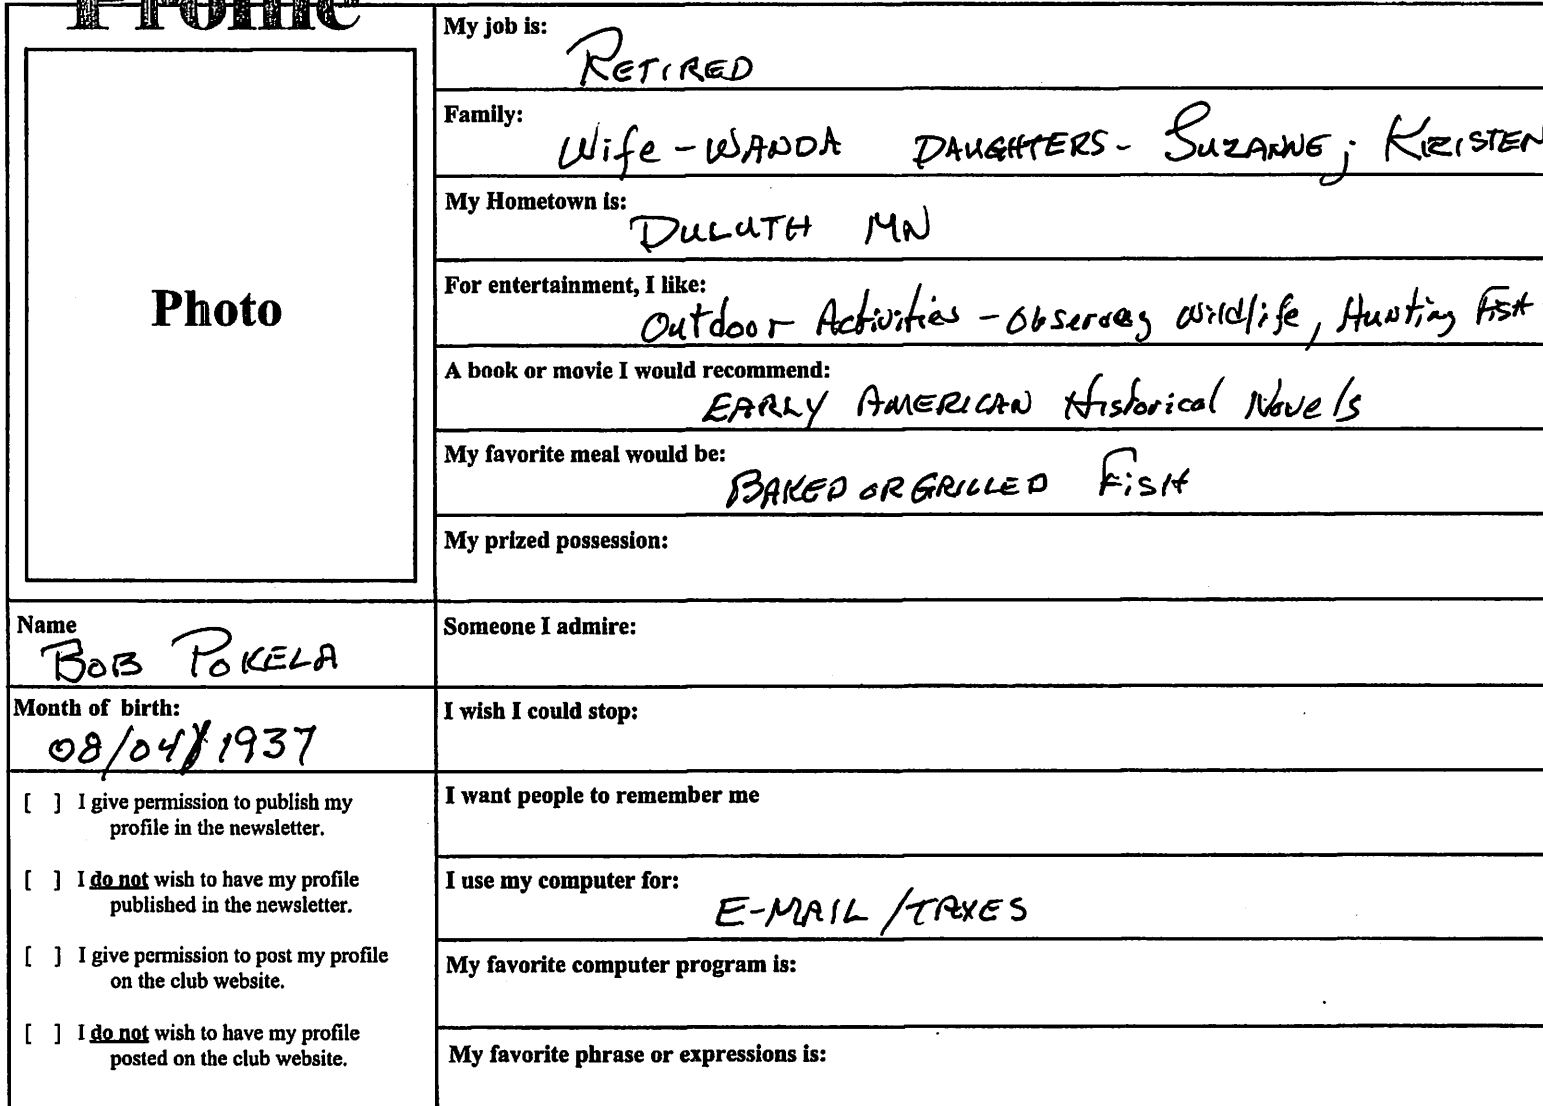 Profile
Photo
Name
BOB POKELA
Month of birth:
08/04/1937
[ ] I give permission to publish my
profile in the newsletter.
[ ] I do not wish to have my profile
published in the newsletter.
[ ] I give permission to post my profile
on the club website.
[ ] I do not wish to have my profile
posted on the club website.
My job is:
RETIRED
Family:
Wife - WANDA DAUGHTERS - SUZANNE; KRISTEN
My Hometown is:
DULUTH MN
For entertainment, I like:
Outdoor Activities - Observing wildlife, Hunting FISH
A book or movie I would recommend:
EARLY AMERICAN Historical Novels
My favorite meal would be:
BAKED OR GRILLED FiSH
My prized possession:
Someone I admire:
I wish I could stop:
I want people to remember me
I use my computer for:
E-MAIL / TAXES
My favorite computer program is:
My favorite phrase or expressions is: